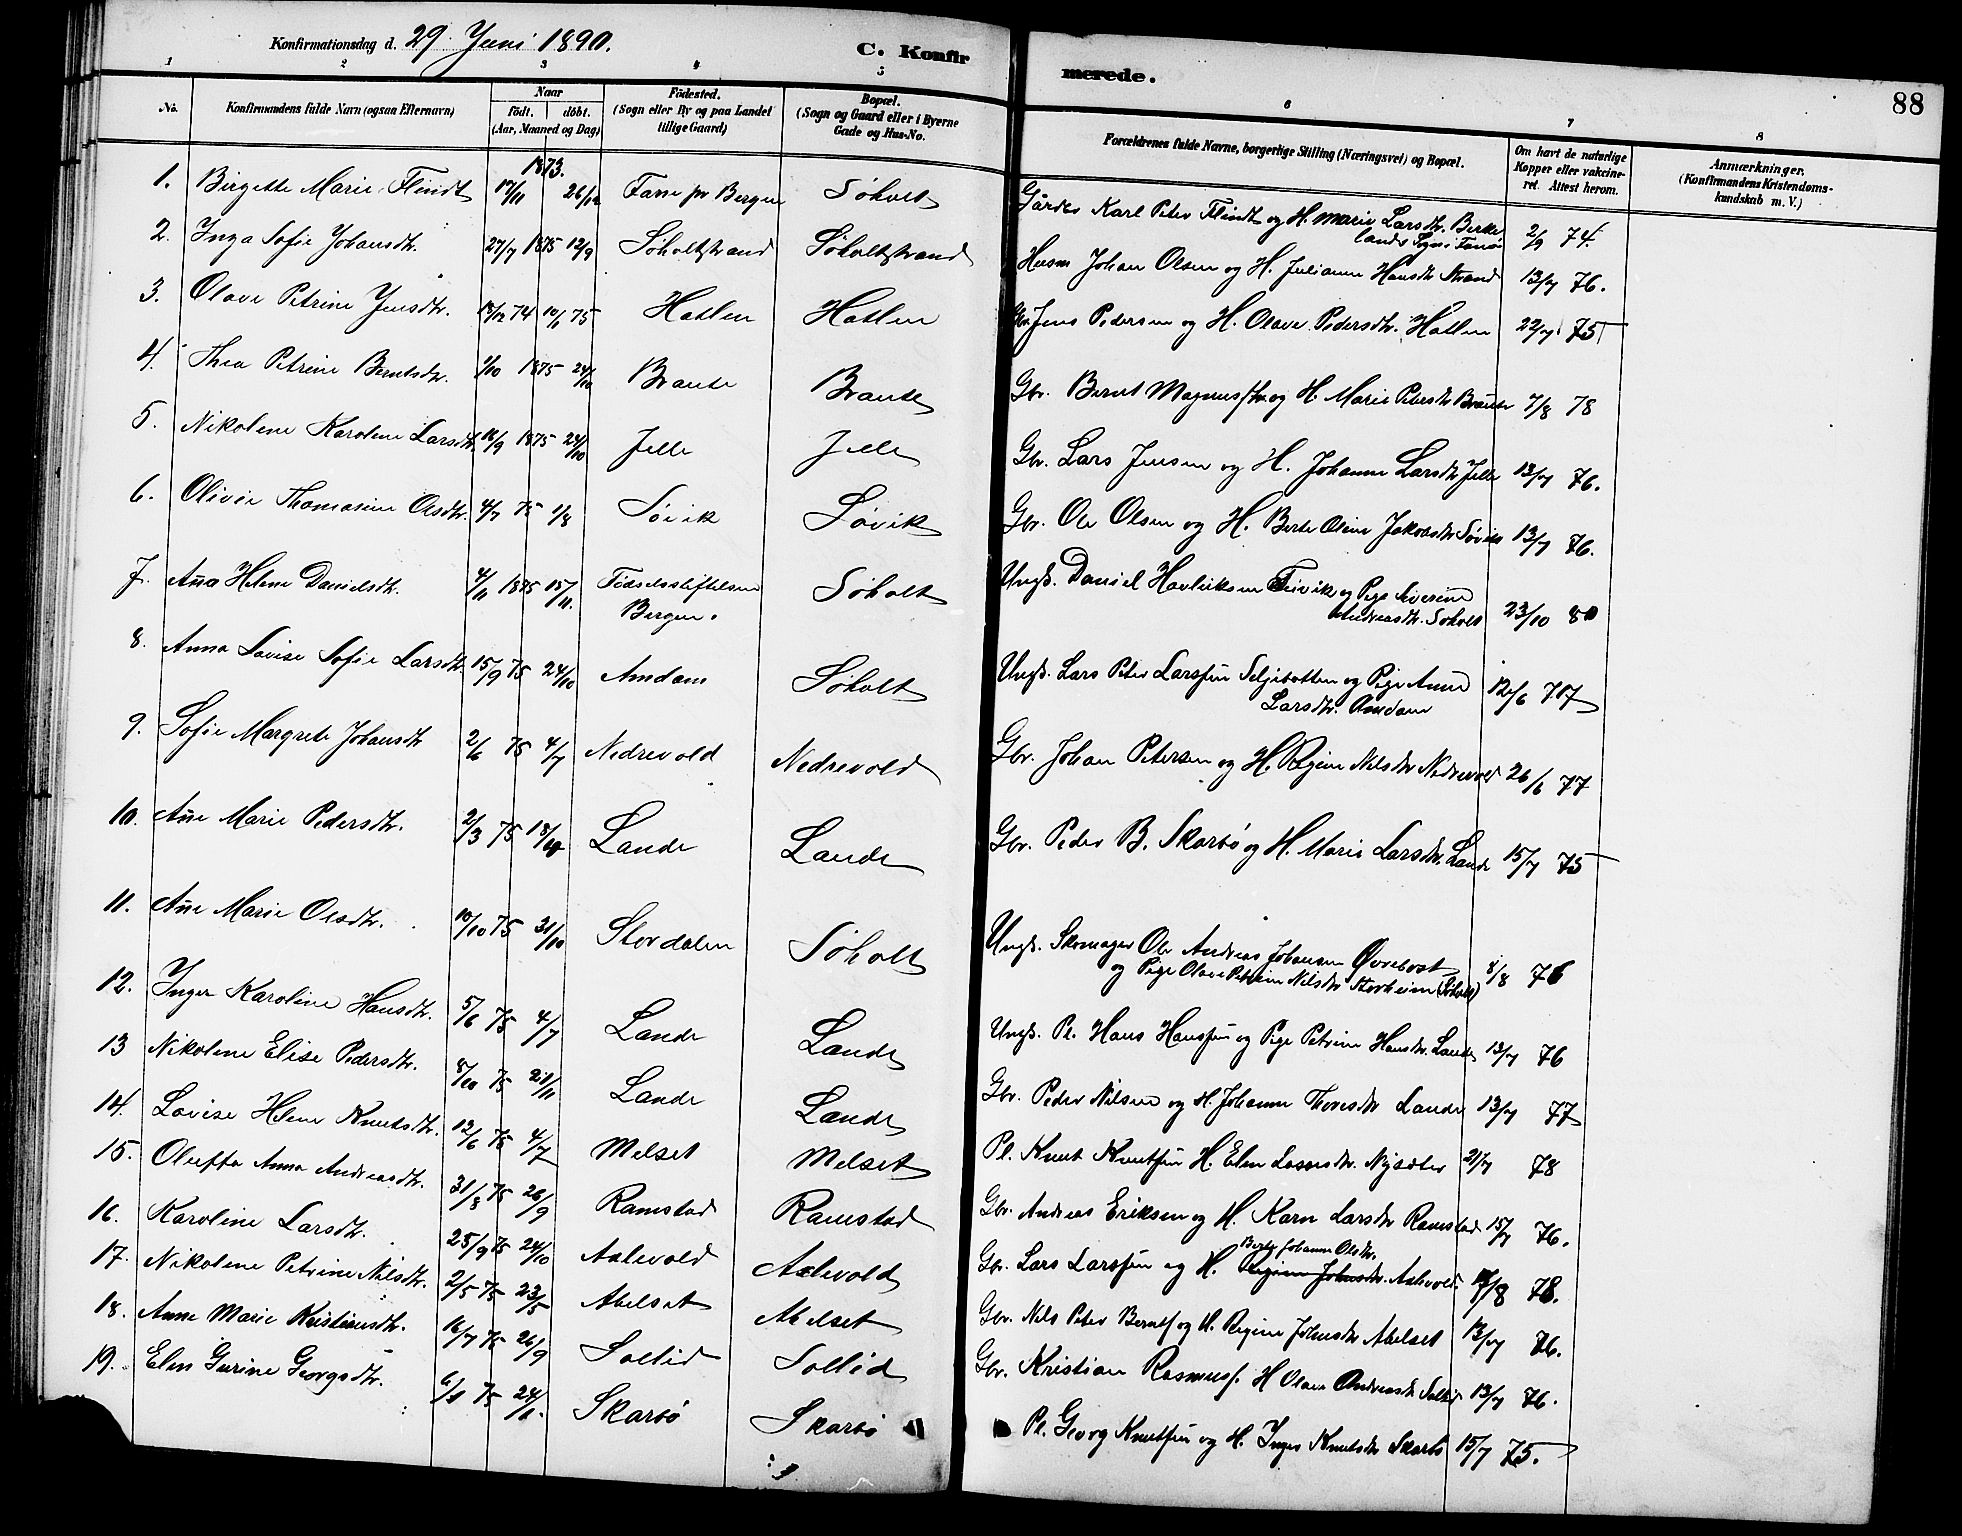 Konfirmationsdag d. 29 Juni 1890.
C. Konfirmerede.
88
1 2 3 4 5 6 7 8
No. Konfirmandens fulde Navn (ogsaa Efternavn) Naar Födt. döbt. (Aar, Maaned og Dag) Födested. (Sogn eller By og paa Landet tillige Gaard) Bopæl. (Sogn og Gaard eller i Byerne Gade og Hus-No. Forældrenes fulde Navne, borgerlige Stilling (Næringsvei) og Bopæl. Om havt de naturlige Kopper eller vakcineret. Attest herom. Anmærkninger. (Konfirmandens Kristendomskundskab m. V.)
1873.
1. Birgette Marie Flindt 17/11 26/12 Fane pr Bergen Søholt Karl Peter Flindt og H. Marie Larsdtr. 2/9 74.
2. Inga Sofie Johansdtr. 27/7 1875 12/9 Søholtstrand Søholtstrand Husm Johan Olsen og H. Julianne Hansdtr Strand 13/7 76.
3. Olave Petrine Jensdtr. 74 10/1 75 Hatlen Hatlen Gbr Jens Pedersen og H. Olave Pedersdtr. Hatlen 22/7 75
4. Thea Petrine Berntsdtr. 1/10 1875 24/10 Braute Braute Gbr. Bernt Magnus og H. Marie Petersdtr Braute 7/8 78
5. Nikoline Karoline Larsdtr. 16/9 1875 24/10 Jelle Jelle Gbr. Lars Jensen og H. Johanne Larsdtr Jelle 13/7 76.
6. Olivie Thomasine Olsdtr. 4/7 75 1/8 Søvik Søvik Gbr. Ole Olsen og H. Berte Oline Jakobsdtr Søvik 13/7 76.
7. Ana Helene Danielsdtr. 4/11 1875 15/11. Fødselsstiftelsen Bergen. Søholt Ungk. Daniel og Pige Severine Andreasdtr. Søholt 23/10 80
8. Anna Lovise Sofie Larsdtr. 15/9 75 24/10 Amdam Søholt Ungk. Lars Peter Larssen Seljebotten og Pige Anne Larsdtr. Amdam 12/6 77
9. Sofie Margrete Johansdtr 2/6 75 4/7 Nedrevold Nedrevold Gbr. Johan Petersen og H. Regine Nilsdtr Nedrevold 26/6 77
10. Ane Marie Pedersdtr. 2/3 75 18/4 Lande Lande Gbr. Peder B. Skarbø og H. Marie Larsdtr. Lande 15/7 75
11. Ane Marie Olsdtr. 10/10 75 31/10 Stordalen Søholt Ungk. Skomager Ole Andreas Johansen Øvrebost og Pige Olave Petrine Nilsdtr Storheim (Søholt) 8/8 76
12. Inger Karoline Hansdtr. 5/6 75 4/7 Lande Lande Ungk. Pl. Hans Hanssen og Pige Petrine Hansdtr. Lande 13/7 76
13 Nikoline Elise Pedersdtr. 8/10 75 21/11 Lande Lande Gbr. Peder Nilsen og H. Johanne Thoresdtr Lande 13/7 77
14. Lovise Helene Knutsdtr. 13/6 75 4/7 Melset Melset Pl. Knut Knutsen H. Elen Lassesdtr. Nysæter 21/7 78
15. Oluffa Anna Andreasdtr. 31/8 75 26/9 Ramstad Ramstad Gbr. Andreas Eriksen og H. Karn Larsdtr Ramstad 15/7 76.
16. Karoline Larsdtr. 25/9 75 24/10 Aakvold Aakvold Gbr. Lars Larssen og H. Regine Johnsdtr. Berte Johanne Olsdtr. Aakvold /8 78.
17. Nikoline Petrine Nilsdtr. 2/5 75 23/5 Abelset Abelset Gbr. Nils Peter Bernts og H. Regine Johnsdtr Abelset 13/7 76.
18. Anne Marie Kristiansdtr. 16/7 75 26/9 Sollid Sollid Gbr. Kristian Rasmuss. H Olave Andreasdtr Sollid 13/7 76.
19. Elen Gurine Georgsdtr. 75 24/ Skarbø Skarbø Pl. Georg Knutsen og H. Inger Knutsdtr Skarbø 15/7 75.